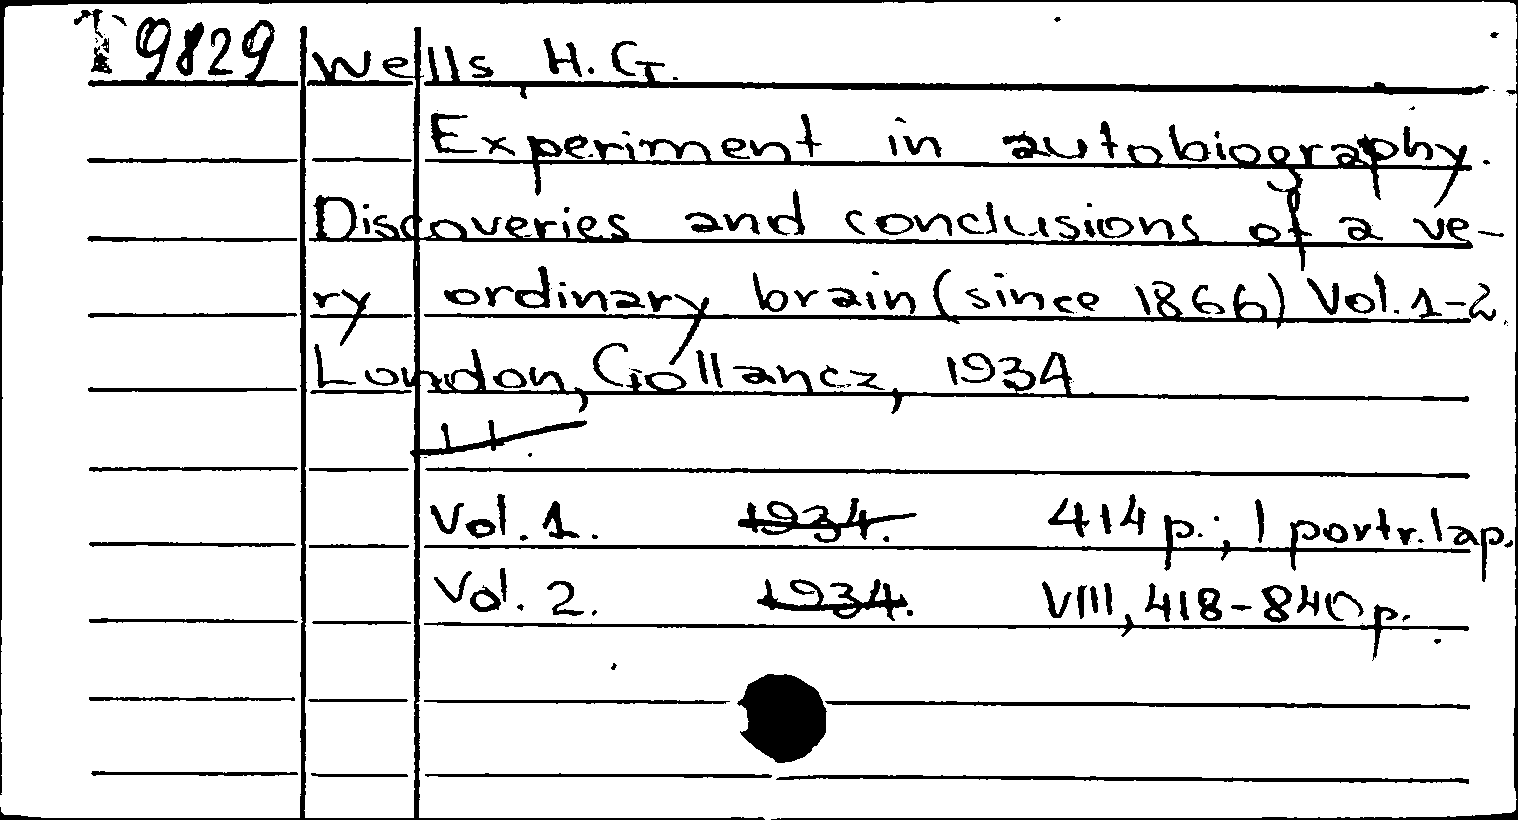 T 9829 Wells, H. G.
Experiment in autobiography.
Discoveries and conclusions of a ve-
ry ordinary brain (since 1866) Vol. 1-2
London, Gollancz, 1934
Vol. 1. 1934. 414 p.; 1 portr. lap.
Vol. 2. 1934. VIII, 418-840 p.